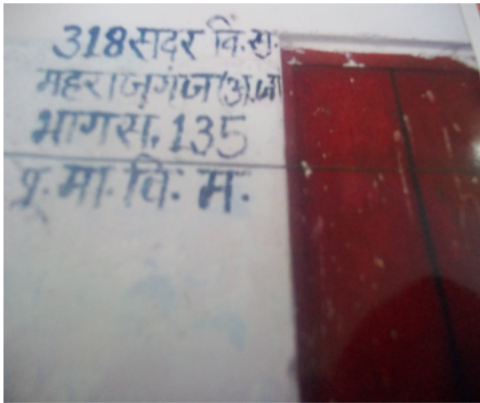 318 सदर वि.स.
महराजगंज (अ.जा
भाग सं. 135
पू. मा. वि. म.